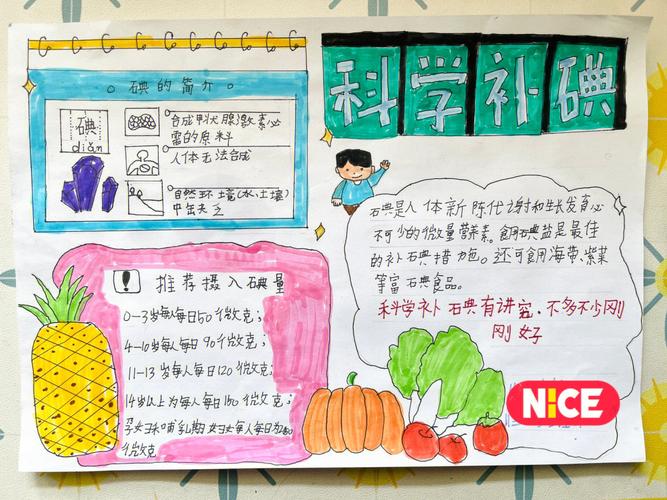 科学补碘
碘的简介
碘
diǎn
合成甲状腺激素必
需的原料
人体无法合成
自然环境(水、土壤)
中缺乏
碘是人体新陈代谢和生长发育必
不可少的微量营养素。食用碘盐是最佳
的补碘措施。还可食用海带、紫菜
等富碘食品。
科学补碘有讲究,不多不少刚
刚好
! 推荐摄入碘量
0-3岁每人每日50微克;
4-10岁每人每日90微克;
11-13岁每人每日120微克;
14岁以上为每人每日150微克;
孕妇和哺乳期妇女每人每日为
微克
NICE